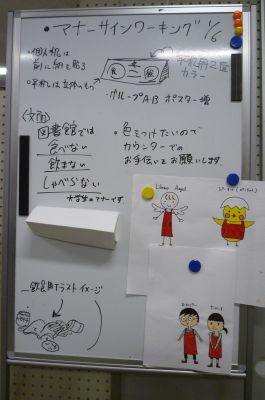 ・マナーサインワーキング 1/6
・個人机は
前に紙を貼る
・平机は立体のもの
カラー
・グループA・B ポスター増
(文面)
図書館では
食べない
飲まない
しゃべらない
大学生のマナーです
・色をつけたいので
カウンターでの
お手伝いをお願いします
イラストイメージ
Library Angel